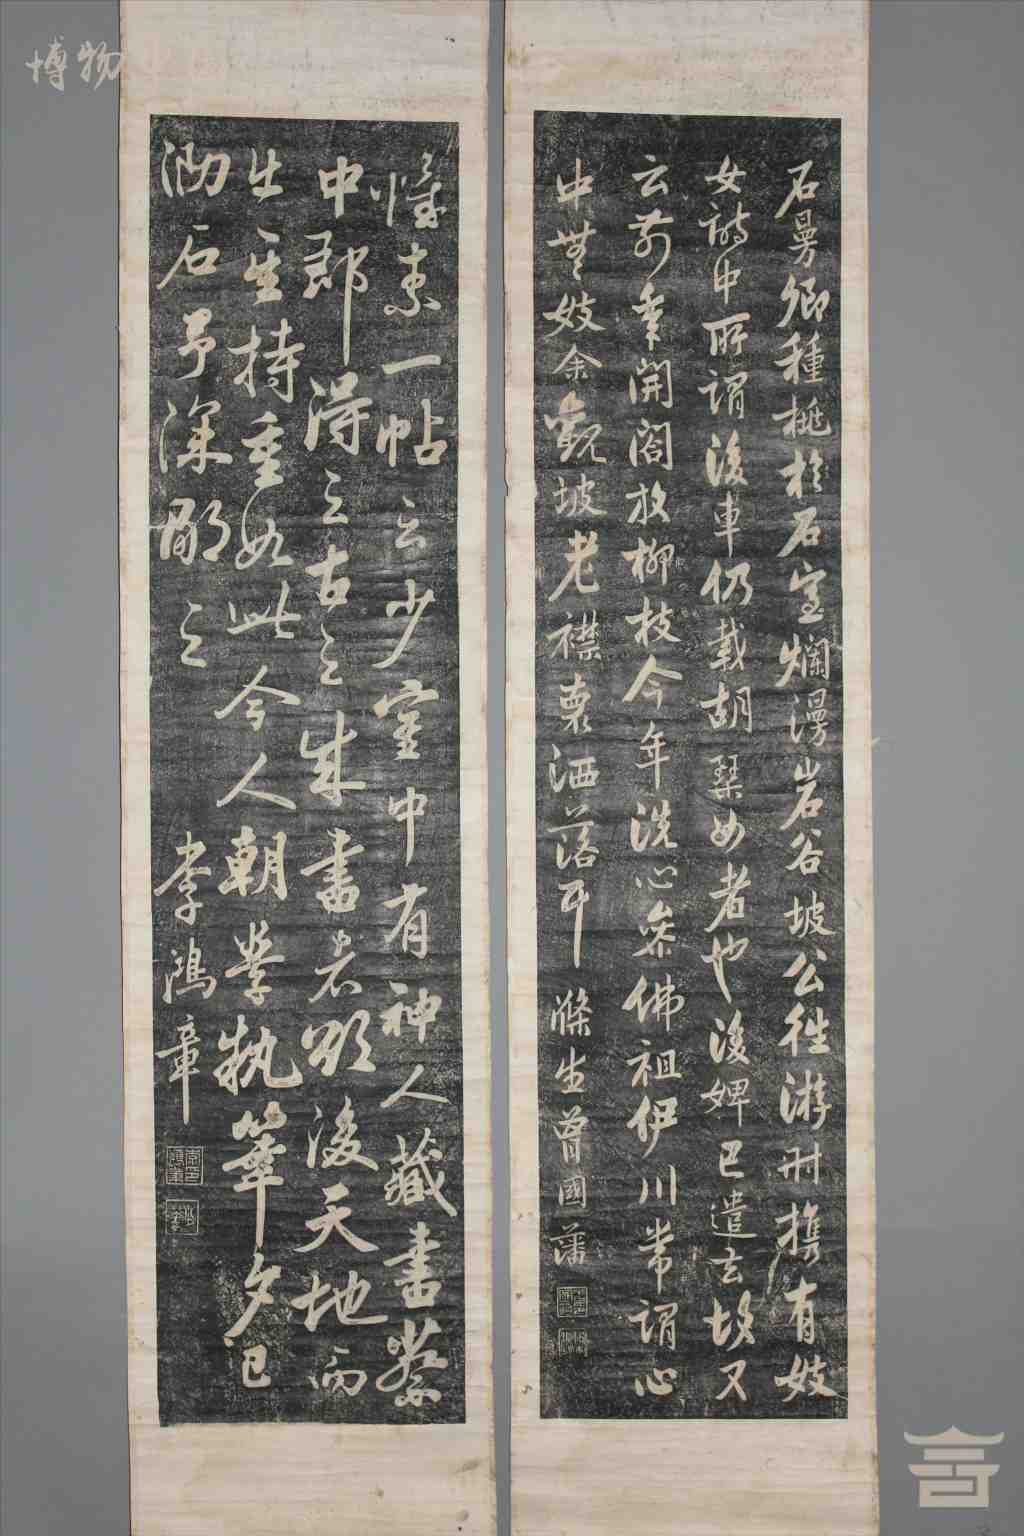 石曼卿種桃於石室爛漫岩谷坡公往游時携有妓
女詩中所謂後車仍載胡琴女者也後婢已遣去故又
云前年開閤放柳枝今年洗心參佛祖伊川常謂心
中無妓余觀坡老襟裏洒落耳
滌生曾國藩
懷素一帖云少室中有神人藏書蔡
中郎得之古之成書者欲後天地而
生其持重如此今人朝學執筆夕已
泐石予深鄙之
李鴻章
博物